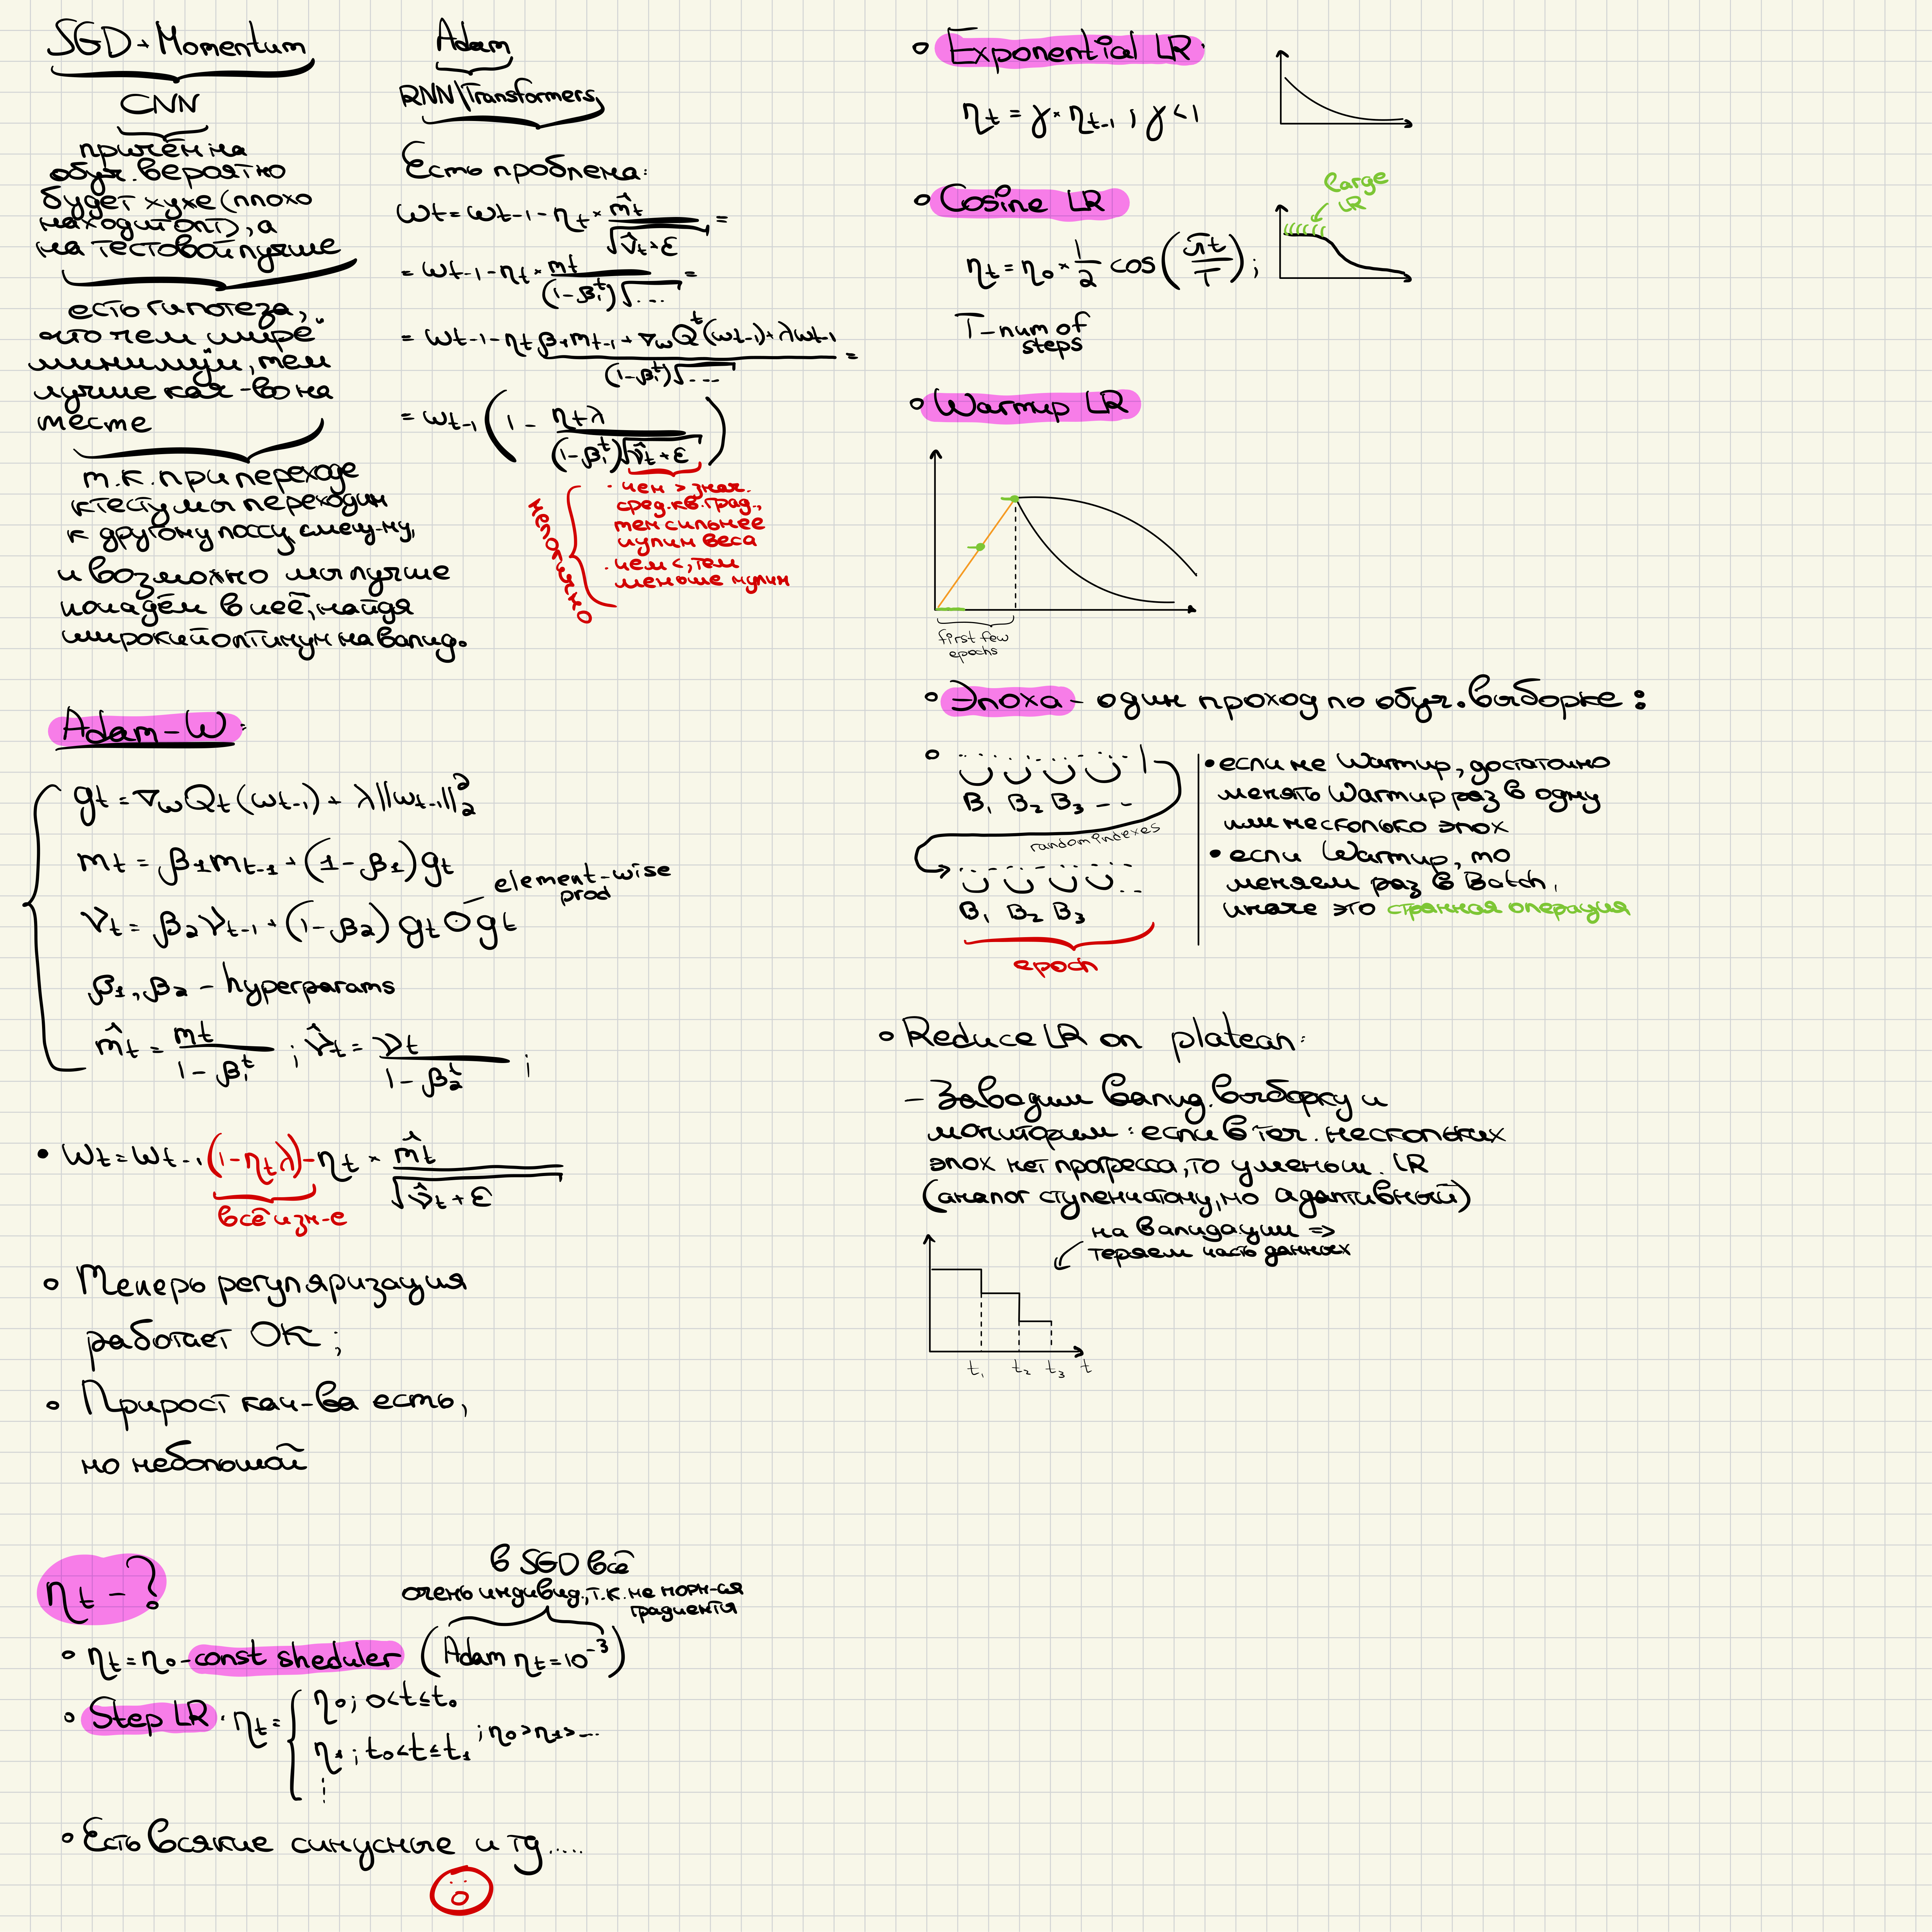 SGD + Momentum
CNN
причём на
обуч. вероятно
будет хуже (плохо
находит опт), а
на тестовой лучше
есть гипотеза,
что чем шире
минимум, тем
лучше кач-во на
тесте
т.к. при переходе
к тесту мы переходим
к другому лоссу, смещ-му,
и возможно мы лучше
попадём в неё, найдя
широкий оптимум на валид.
Adam
RNN\Transformers
Есть проблема:
ωt = ωt-1 - ηt × m̂t / √v̂t + ε =
= ωt-1 - ηt × mt / (1-β₁ᵗ)√.... =
= ωt-1 - ηt β₁mt-1 + ∇ω Qᵗ(ωt-1) + λωt-1 / (1-β₁ᵗ)√.... =
= ωt-1 (1 - ηtλ / (1-β₁ᵗ)√v̂t + ε)
нелогично
· чем > знач.
сред. кв. град.,
тем сильнее
нулим веса
· чем <, тем
меньше нулим
Adam-W:
gt = ∇ω Qt (ωt-1) + λ||ωt-1||₂²
mt = β₁mt-1 + (1-β₁)gt
element-wise
prod
νt = β₂νt-1 + (1-β₂) gt ⊙ gt
β₁, β₂ - hyperparams
m̂t = mt / 1 - β₁ᵗ ; ν̂t = νt / 1 - β₂ᵗ ;
• ωt = ωt-1 (1-ηtλ) - ηt × m̂t / √v̂t + ε
всё изм-е
Теперь регуляризация
работает OK;
Прирост кач-ва есть,
но небольшой
ηt - ?
в SGD всё
очень индивид., т.к. не норм-ся
градиенты
ηt = η₀ - const sheduler (Adam ηt = 10⁻³)
Step LR : ηt = { η₀ ; 0<t≤t₀
η₁ ; t₀<t≤t₁ ; η₀>η₁>...
Есть всякие синусные и тд.....
Exponential LR
ηt = γ × ηt-1 ; γ<1
Cosine LR
Large
LR
ηt = η₀ × 1/2 cos(πt/T) ;
T - num of
steps
Warmup LR
first few
epochs
Эпоха - один проход по обуч. выборке :
B₁ B₂ B₃ - -
random indexes
B₁ B₂ B₃
epoch
• если не Warmup, достаточно
менять Warmup раз в одну
или несколько эпох
• если Warmup, то
меняем раз в Batch,
иначе это странная операция
Reduce LR on platean:
- Заводим валид. выборку и
мониторим: если в теч. нескольких
эпох нет прогресса, то уменьш. LR
(аналог ступенчатому, но адаптивный)
на валидации =>
теряем часть данных
t₁ t₂ t₃ t